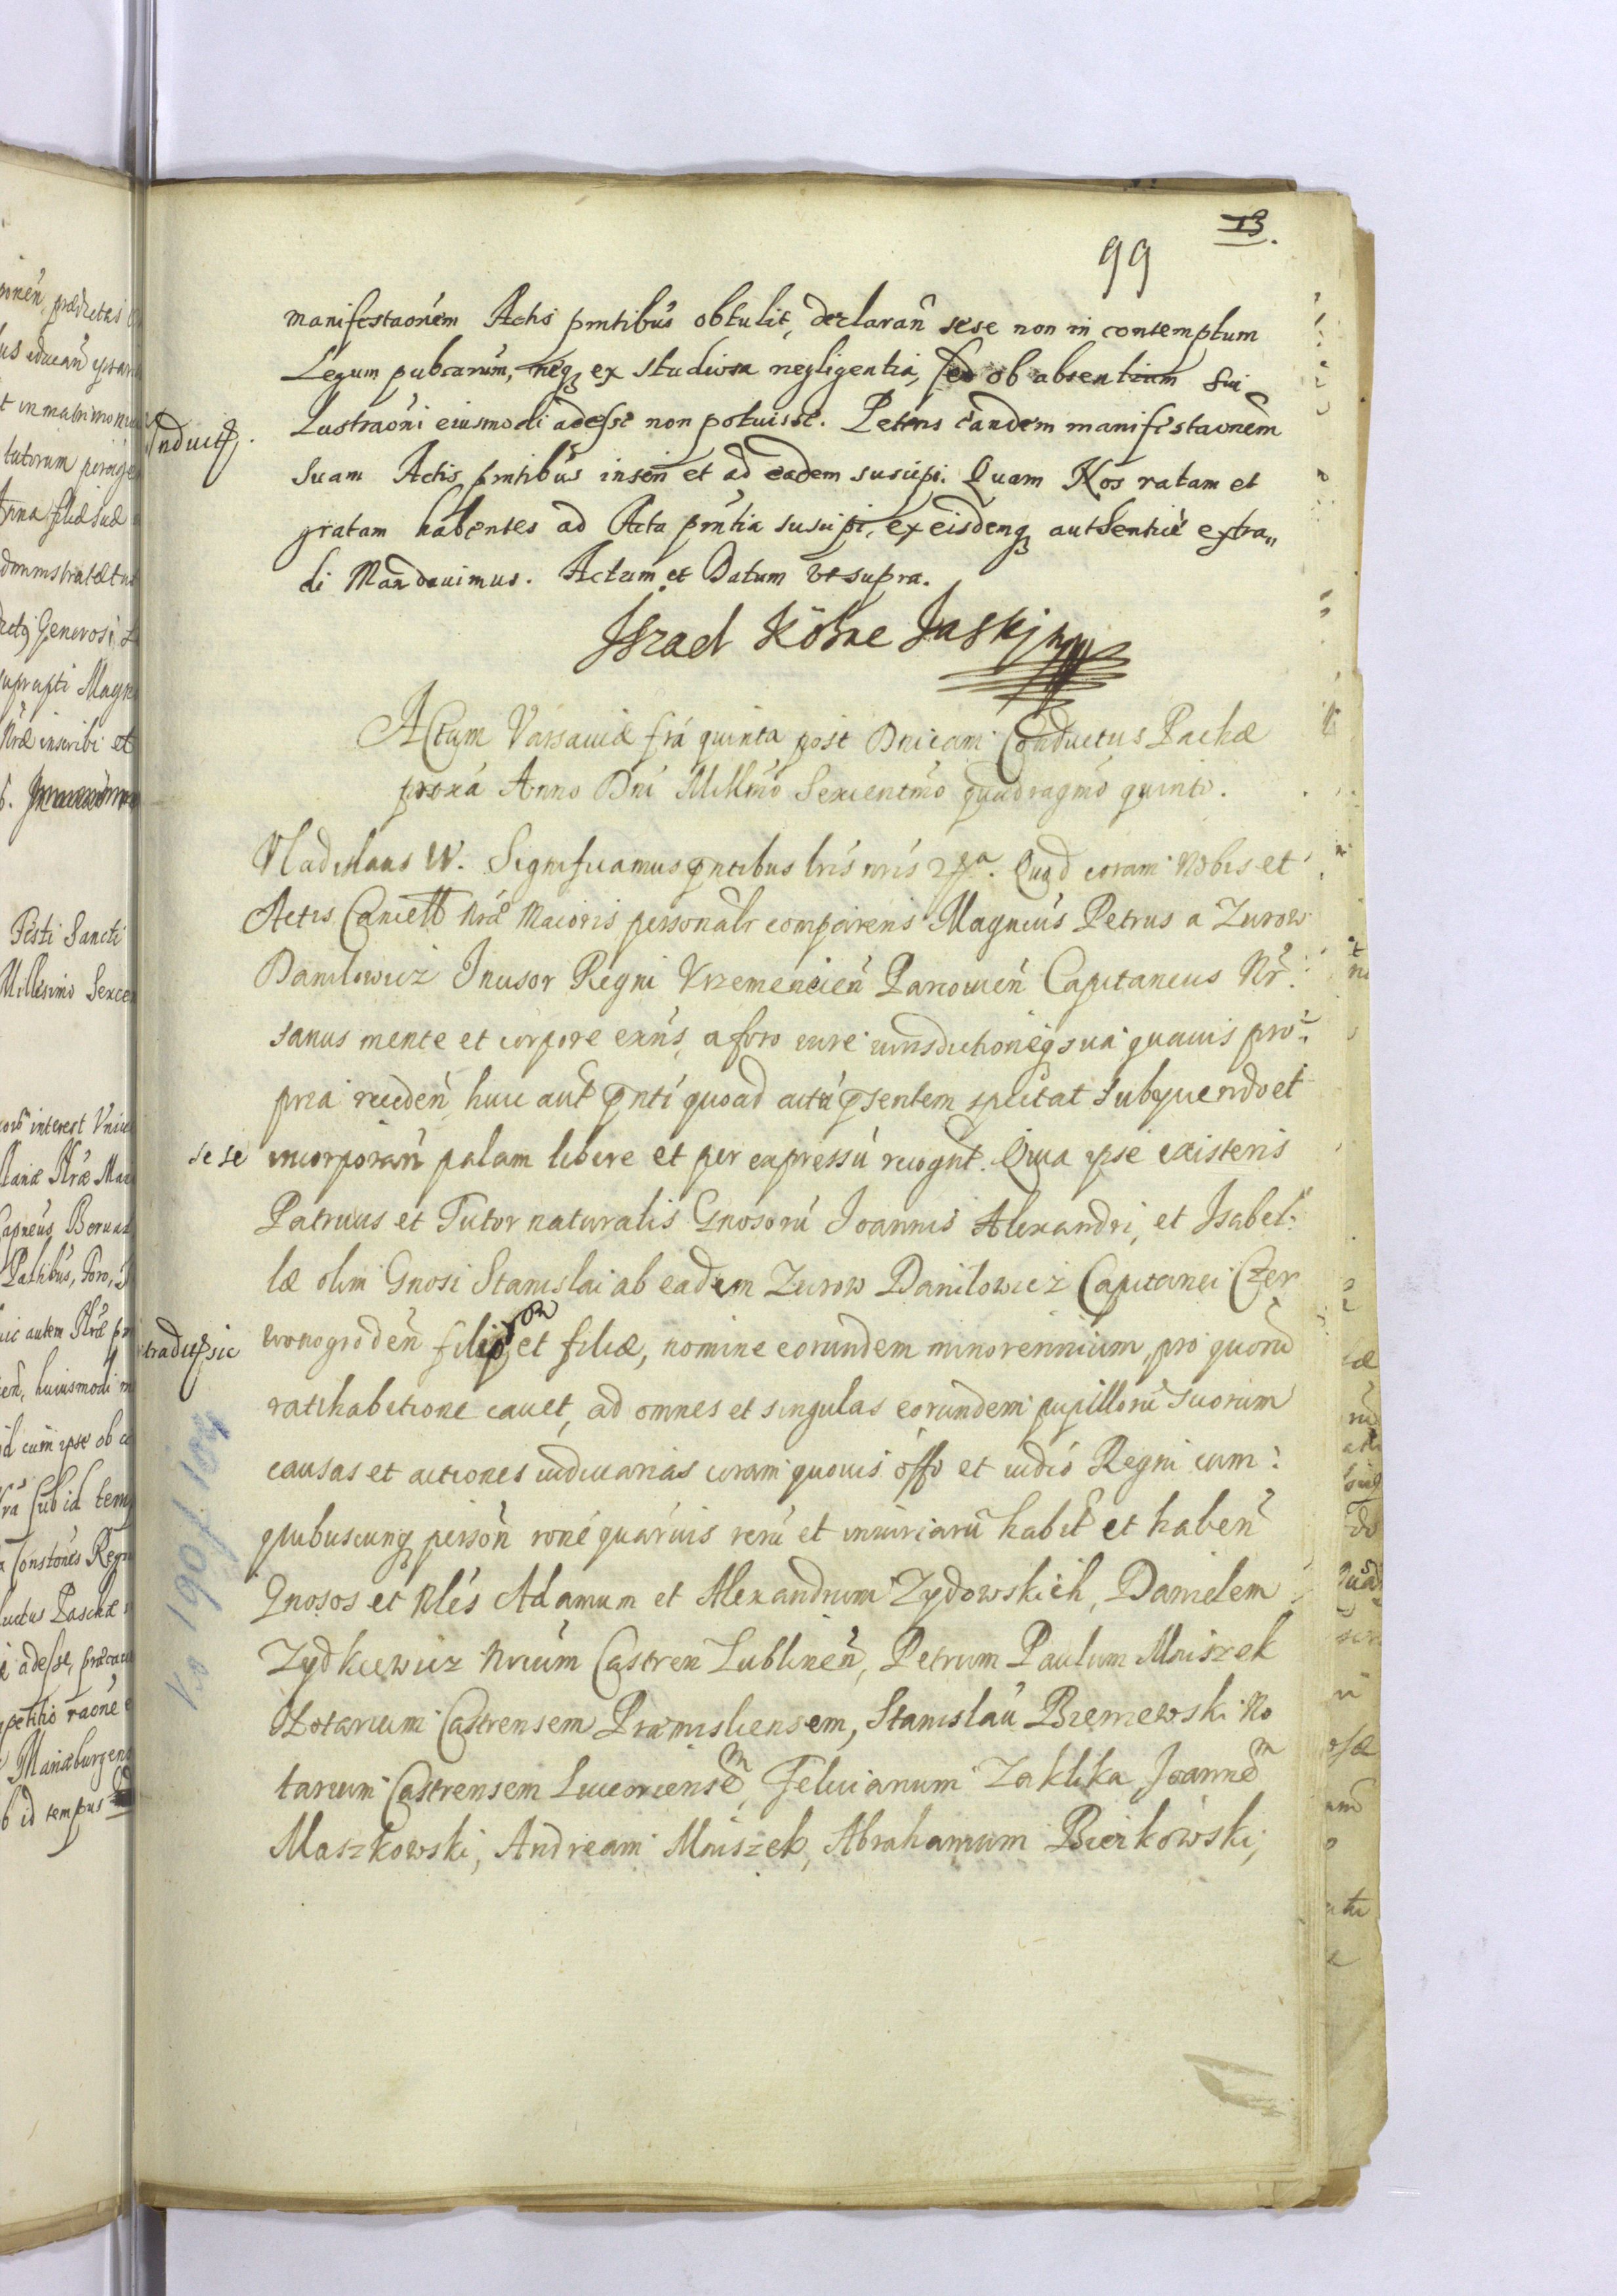 13.
99
manifestaoném Actis pmtibús obtulit, declarañ sese non in contemptum
Legum pubcarum, neqз ex studiosa negligentia, sed ob absentiam sui
Lustraoni eiusmodi adesse non potuisse. Petens eandem manifestaonem
Suam Actis pmtibús inseri et ad eadem suscipi. Quam Nos ratam et
gratam habentes ad Acta pmtia suscipi, ex eisdenqз authenticè extra„
di Mandauimus. Actum et Datum vt supra.
Jsrael Köhne Jaski
Actum Varsauiæ fráa quinta post Dnicam Conductus Pachæ
proxá Anno Dni Millmo Sexcentmo quadragmo quinto.
Vladislaus IV. Significamus pntibus lris nris Quod coram Nobis et
Actis Cancell Nræ Maioris personalr comparens Magncus Petrus a Zurow
Danilowicz Incisor Regni Krzemencieñ Parcouieñ Capitaneus Nr.
sanus mente et corpore exñs, a foro iure iurisdictioneqз sua quauis pro„
pria recedeñ huic aut pnti quoad actú psentem spectat subyciendo et
se se incorporañ palam libere et per expressú recognt. Quia ipse existens
Patruus et Tutor naturalis Gnosorú Joannis Alexandri, et Isabel„
læ olim Gnosi Stanislai ab eadem Zurow Danilowicz Capitanei Czer
wonogrodeñ filior et filiæ, nomine eorundem minorennium, pro quoru
ratihabitione cauet, ad omnes et singulas eorundem pupillorú suorum
causas et actiones iudiciarias coram quouis offo et iudio Regni cum
quibuscunqз persoñ roné quaruis rerú et iniuriarú habit et habeñ
Gnosos et Nles Adamum et Alexandrum Zydowskich, Danielem
Zydkiewicz Nrium Castren Lublineñ, Petrum Paulum Mniszek
Notarium Castrensem Præmisliensem, Stanislaú Bieniewski No
tarium Castrensem Luceoriensem, Felicianum Zaklika, Joannem
Maszkowski, Andream Mniszek, Abrahamum Bierkowski,